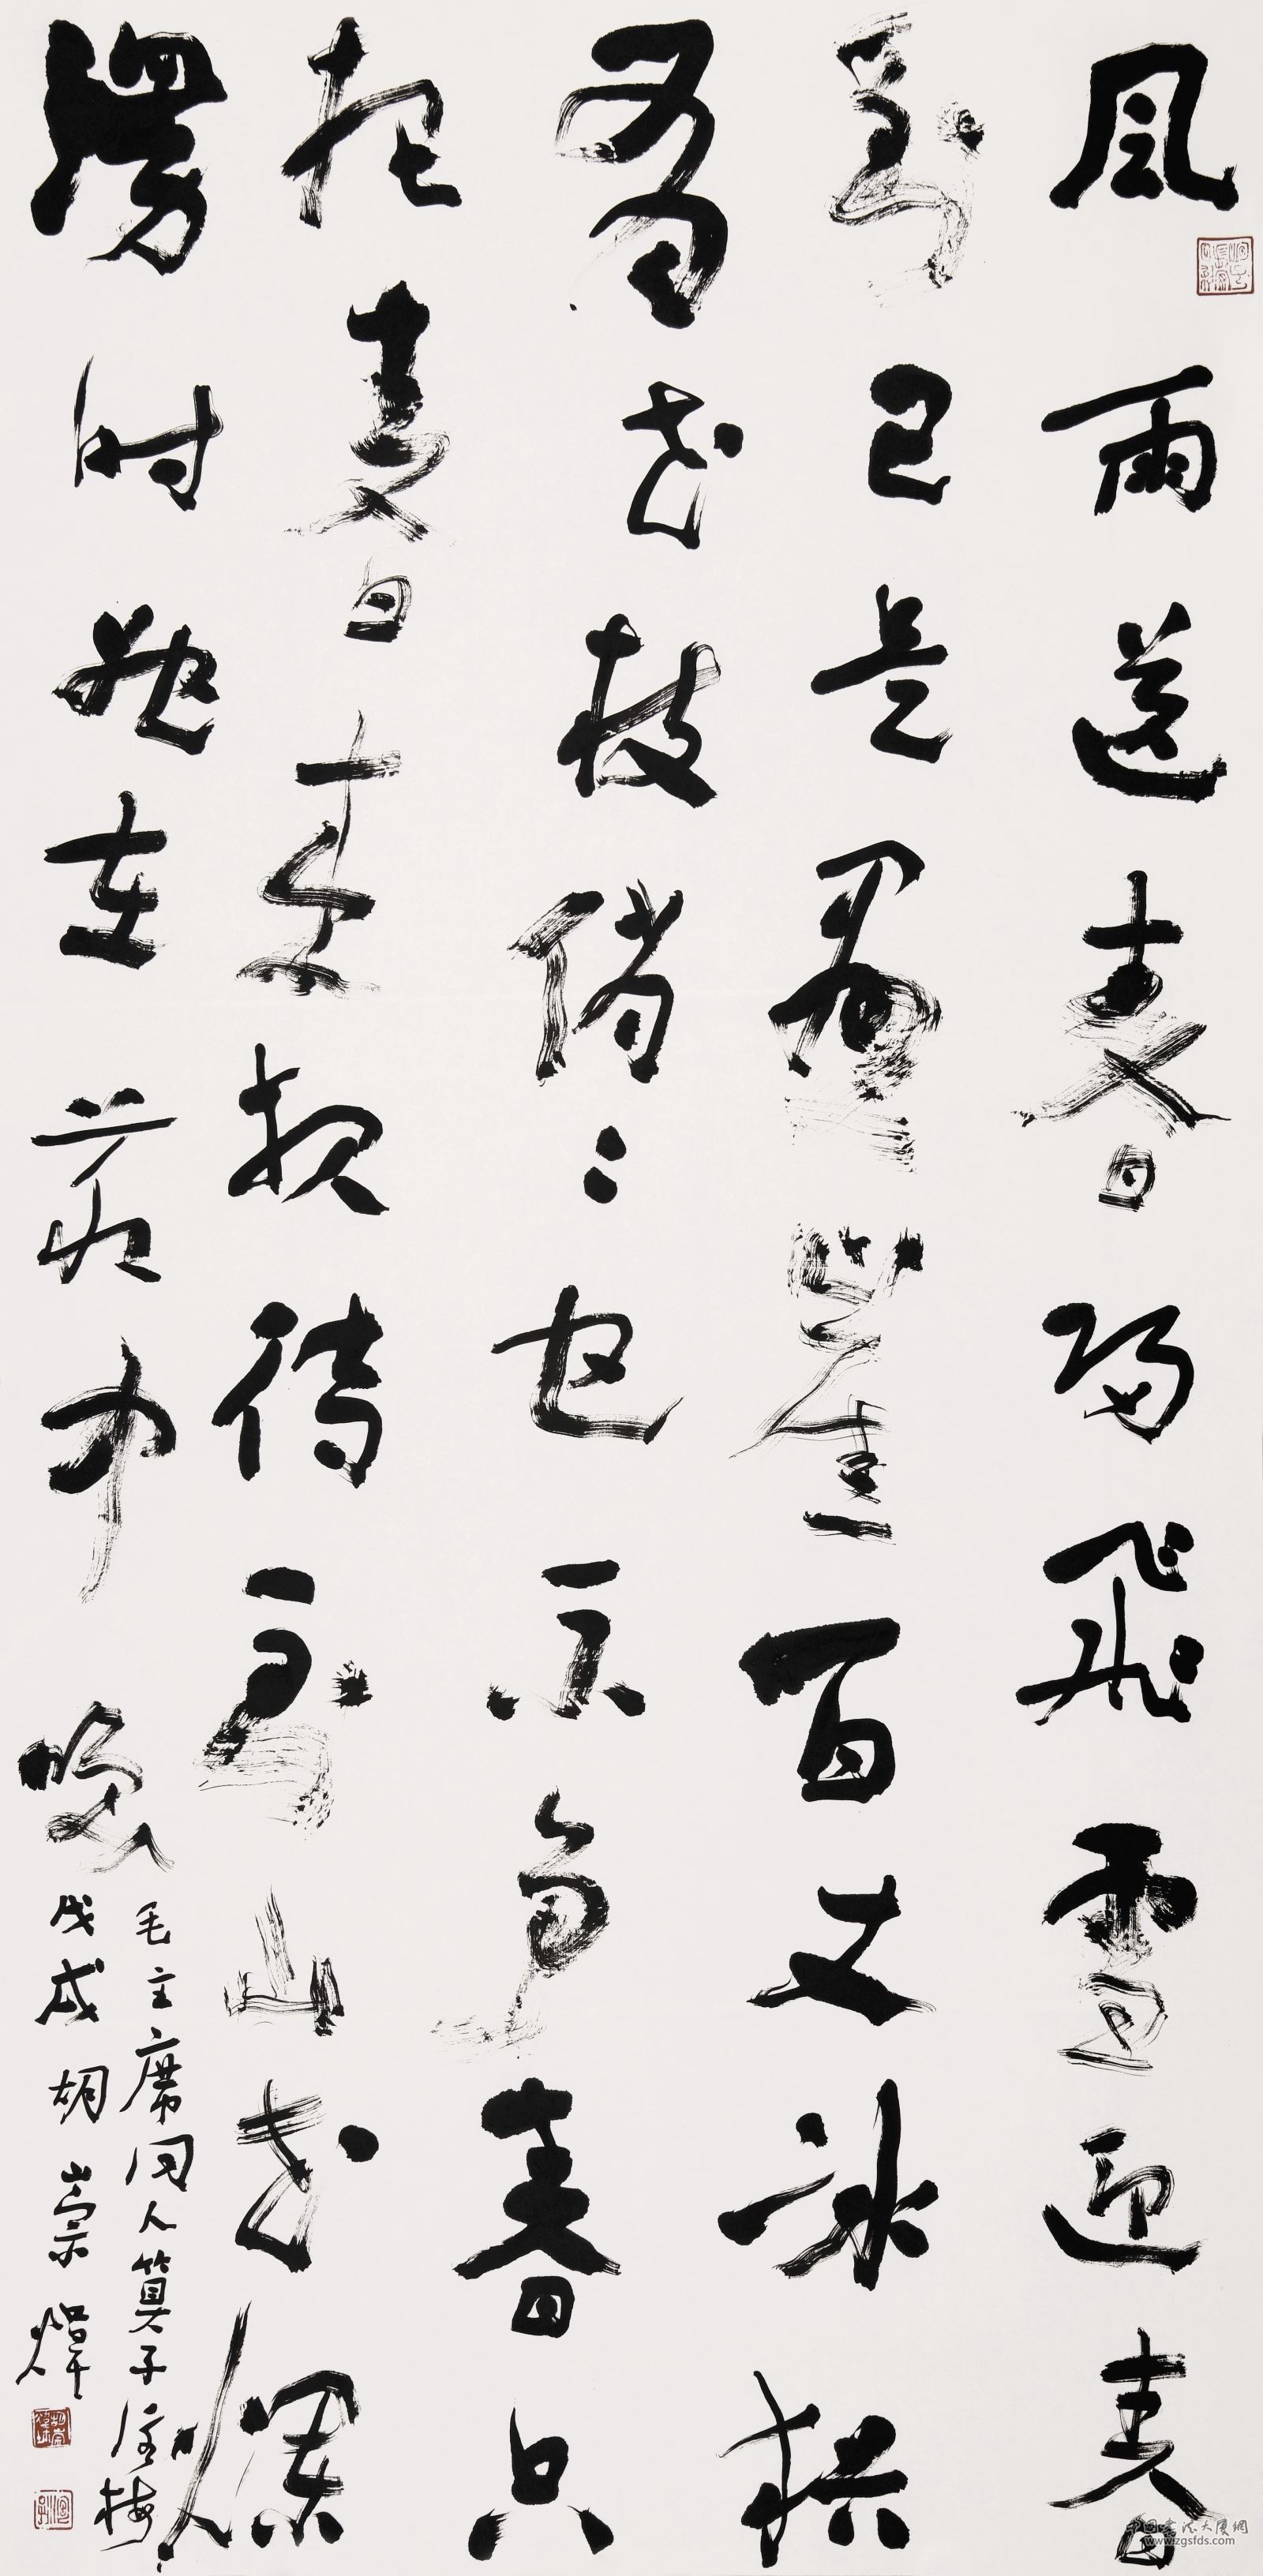 風雨送春歸飛雪迎春
到已是懸崖百丈冰猶
有花枝俏々也不争春只
把春来報待到山花爛
漫时她在叢中笑
毛主席詞卜算子詠梅
戊戌胡崇煒
中国書法大厦網
www.zgsfds.com